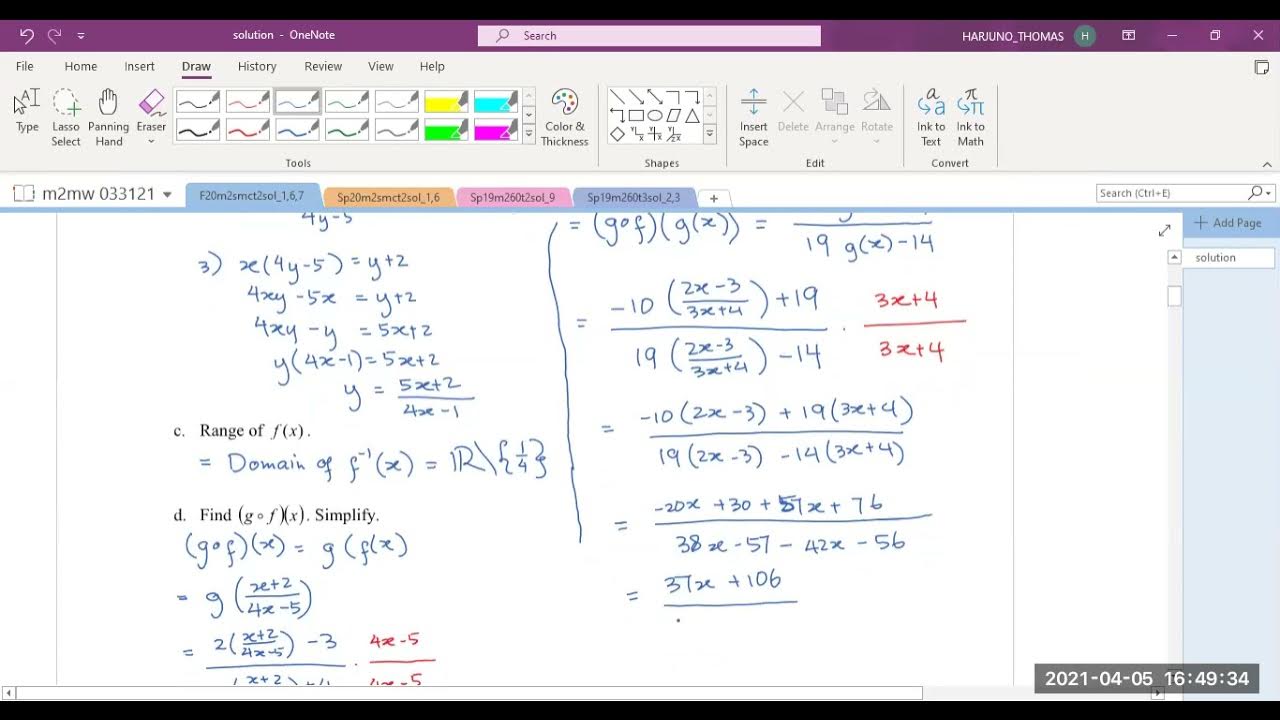 solution - OneNote
Search
HARJUNO_THOMAS
H
File Home Insert Draw History Review View Help
Type
Lasso Select
Panning Hand
Eraser
Color & Thickness
Insert Space
Delete
Arrange
Rotate
Ink to Text
Ink to Math
Tools
Shapes
Edit
Convert
m2mw 033121
F20m2smct2sol_1,6,7
Sp20m2smct2sol_1,6
Sp19m260t2sol_9
Sp19m260t3sol_2,3
+
Search (Ctrl+E)
+ Add Page
solution
4y-5
3) x(4y-5) = y+2
4xy - 5x = y+2
4xy - y = 5x+2
y(4x-1) = 5x+2
y = (5x+2)/(4x-1)
c. Range of f(x).
= Domain of f⁻¹(x) = ℝ\{1/4}
d. Find (g∘f)(x). Simplify.
(g∘f)(x) = g(f(x)
= g((x+2)/(4x-5))
= 2((x+2)/(4x-5)) - 3 · 4x-5
= (g∘f)(g(x)) =
19 g(x) - 14
= (-10((2x-3)/(3x+4)) + 19)/(19((2x-3)/(3x+4)) - 14) · (3x+4)/(3x+4)
= (-10(2x-3) + 19(3x+4))/(19(2x-3) - 14(3x+4))
= (-20x + 30 + 57x + 76)/(38x - 57 - 42x - 56)
= 37x + 106
2021-04-05 16:49:34